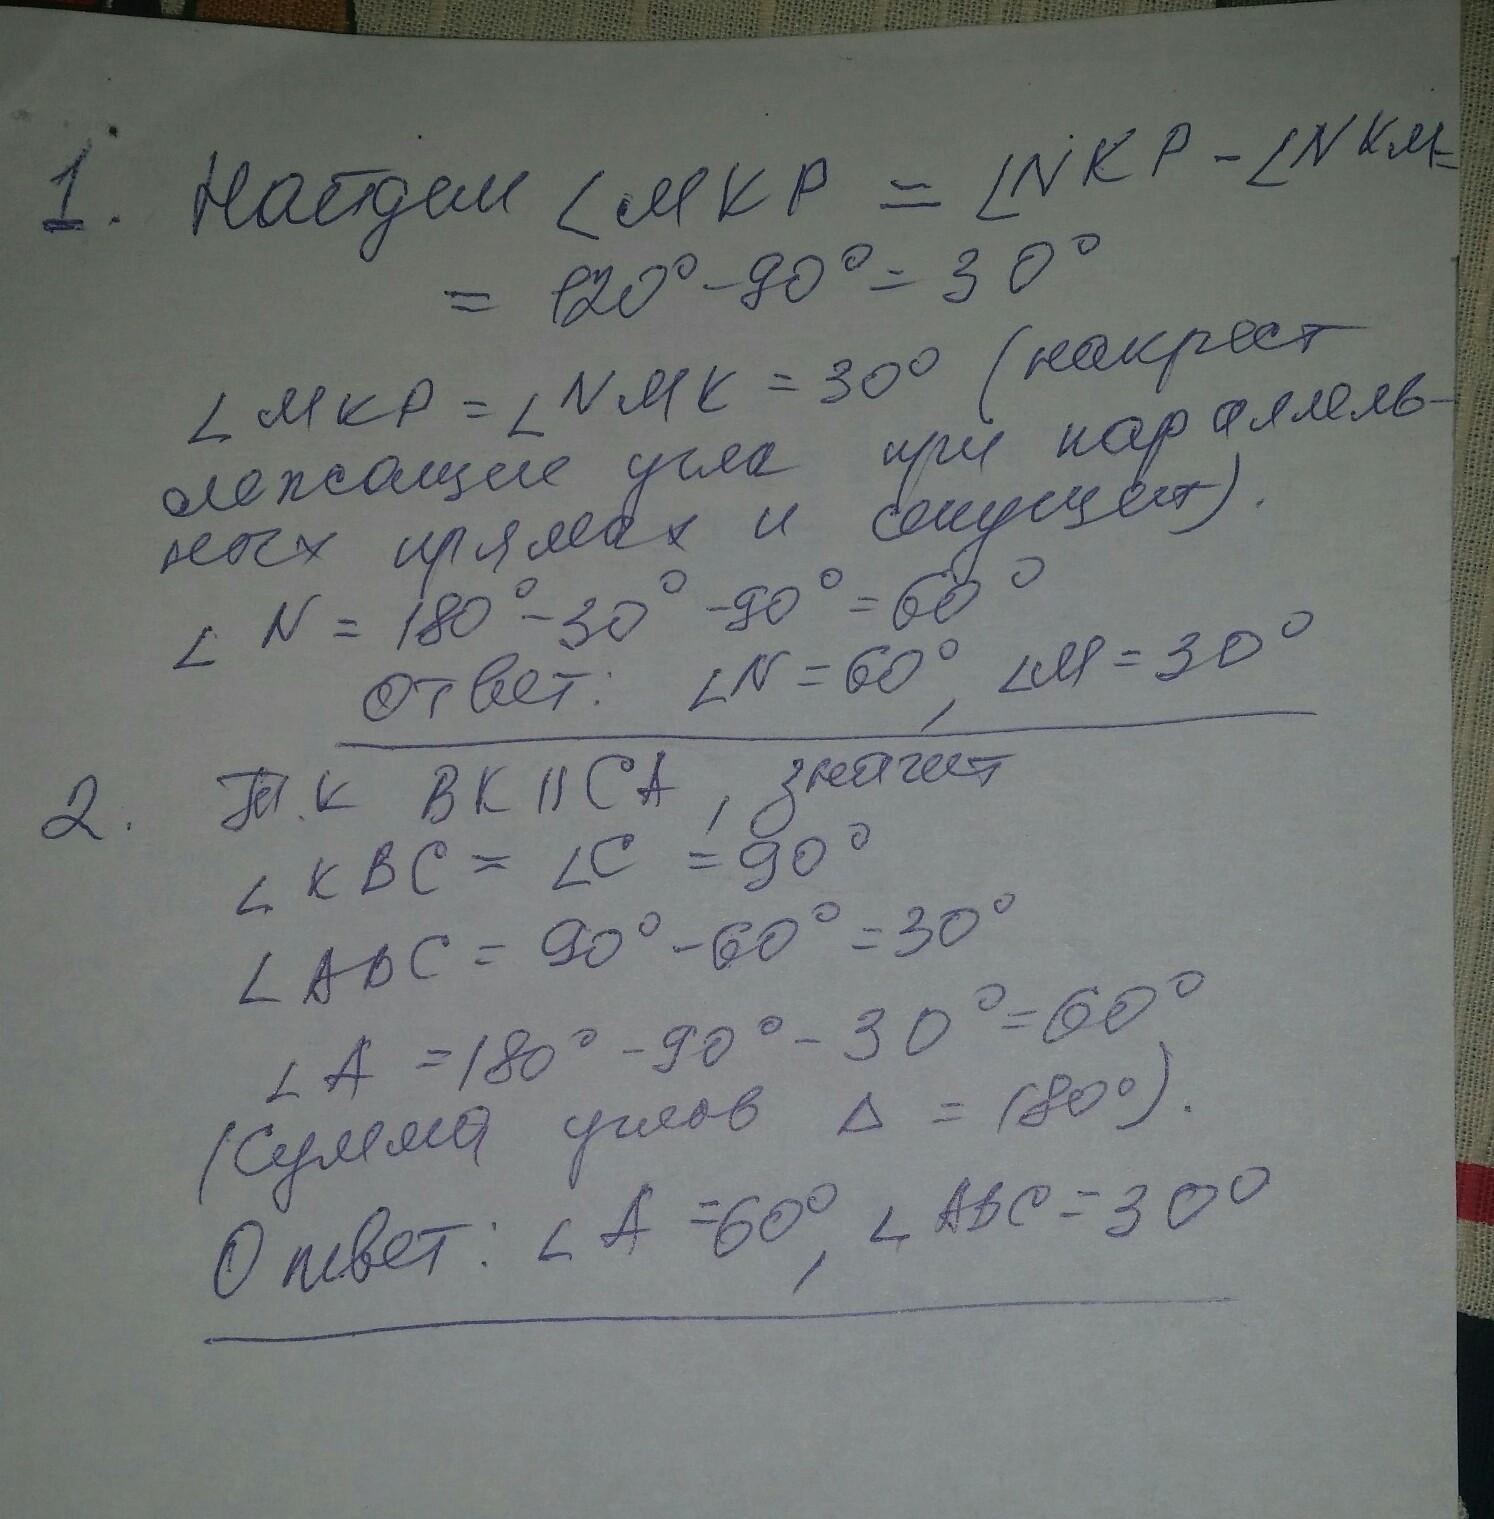 1. Найдем ∠MKP = ∠NKP - ∠NKM =
= 120° - 90° = 30°
∠MKP = ∠NMK = 30° (накрест
лежащие угла при параллель-
ных прямах и секущей).
∠N = 180° - 30° - 90° = 60°
Ответ: ∠N = 60°, ∠M = 30°
2. Т.к BK || CA, значит
∠KBC = ∠C = 90°
∠ABC = 90° - 60° = 30°
∠A = 180° - 90° - 30° = 60°
(Сумма углов Δ = 180°).
Ответ: ∠A = 60°, ∠ABC = 30°